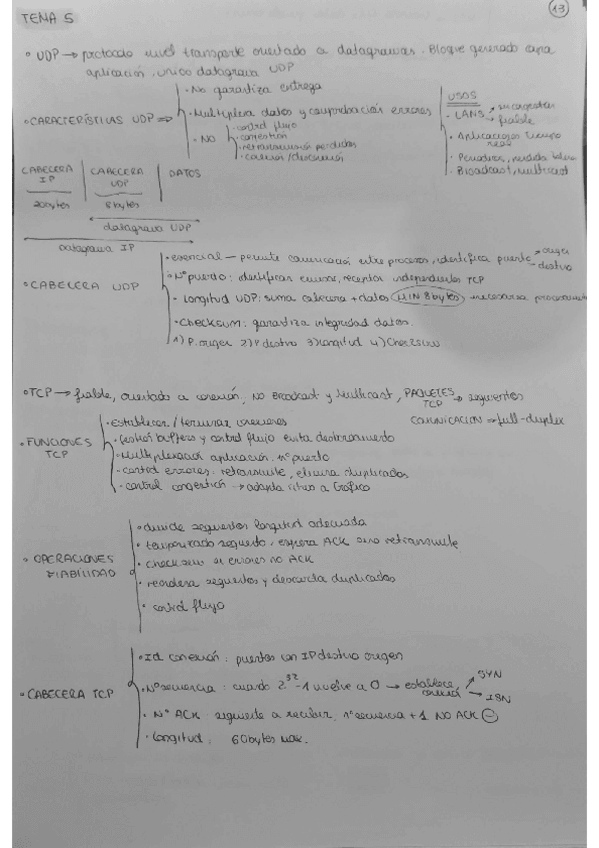 13
TEMA 5
• UDP → protocolo nivel transporte orientado a datagramas. Bloque generado
aplicación, único datagrama UDP
• CARACTERÍSTICAS UDP ⇒
· No garantiza entrega
· Multiplexa datos y comprobación errores
· NO
· control flujo
· congestión
· retransmisión perdidos
· conexión/desconexión
USOS
- LANS
fiable
· Aplicaciones tiempo real
· Broadcast, multicast
CABECERA IP | CABECERA UDP | DATOS
20bytes 8bytes
datagrama UDP
datagrama IP
• CABECERA UDP
· esencial — permite comunicación entre procesos, identifica puerto origen destino
· Nº puerto: identifican emisor, receptor independientes TCP
· Longitud UDP: suma cabecera + datos (MIN 8bytes)
· Checksum: garantiza integridad datos.
1) P. origen 2) P. destino 3) longitud 4) Checksum
• TCP → fiable, orientado a conexión, NO Broadcast y Multicast, PAQUETES TCP → segmentos
COMUNICACIÓN → full-duplex
• FUNCIONES TCP
· Establecer / terminar conexiones
· Gestión buffers y control flujo evita desbordamiento
· Multiplexación aplicación, nº puerto
· control errores: retransmite, elimina duplicados
· control congestión → adapta ritmo a tráfico
• OPERACIONES FIABILIDAD
· divide segmentos longitud adecuada
· temporizado segmento, espera ACK sino retransmite
· checksum si errores no ACK
· reordena segmentos y descarta duplicados
· control flujo
• CABECERA TCP
· Id conexión: puertos con IP destino origen
· Nº secuencia: cuando 2³²-1 vuelve a 0 → establece conexión SYN ISN
· Nº ACK: siguiente a recibir, nº secuencia + 1 NO ACK ⊖
· Longitud: 60bytes max.